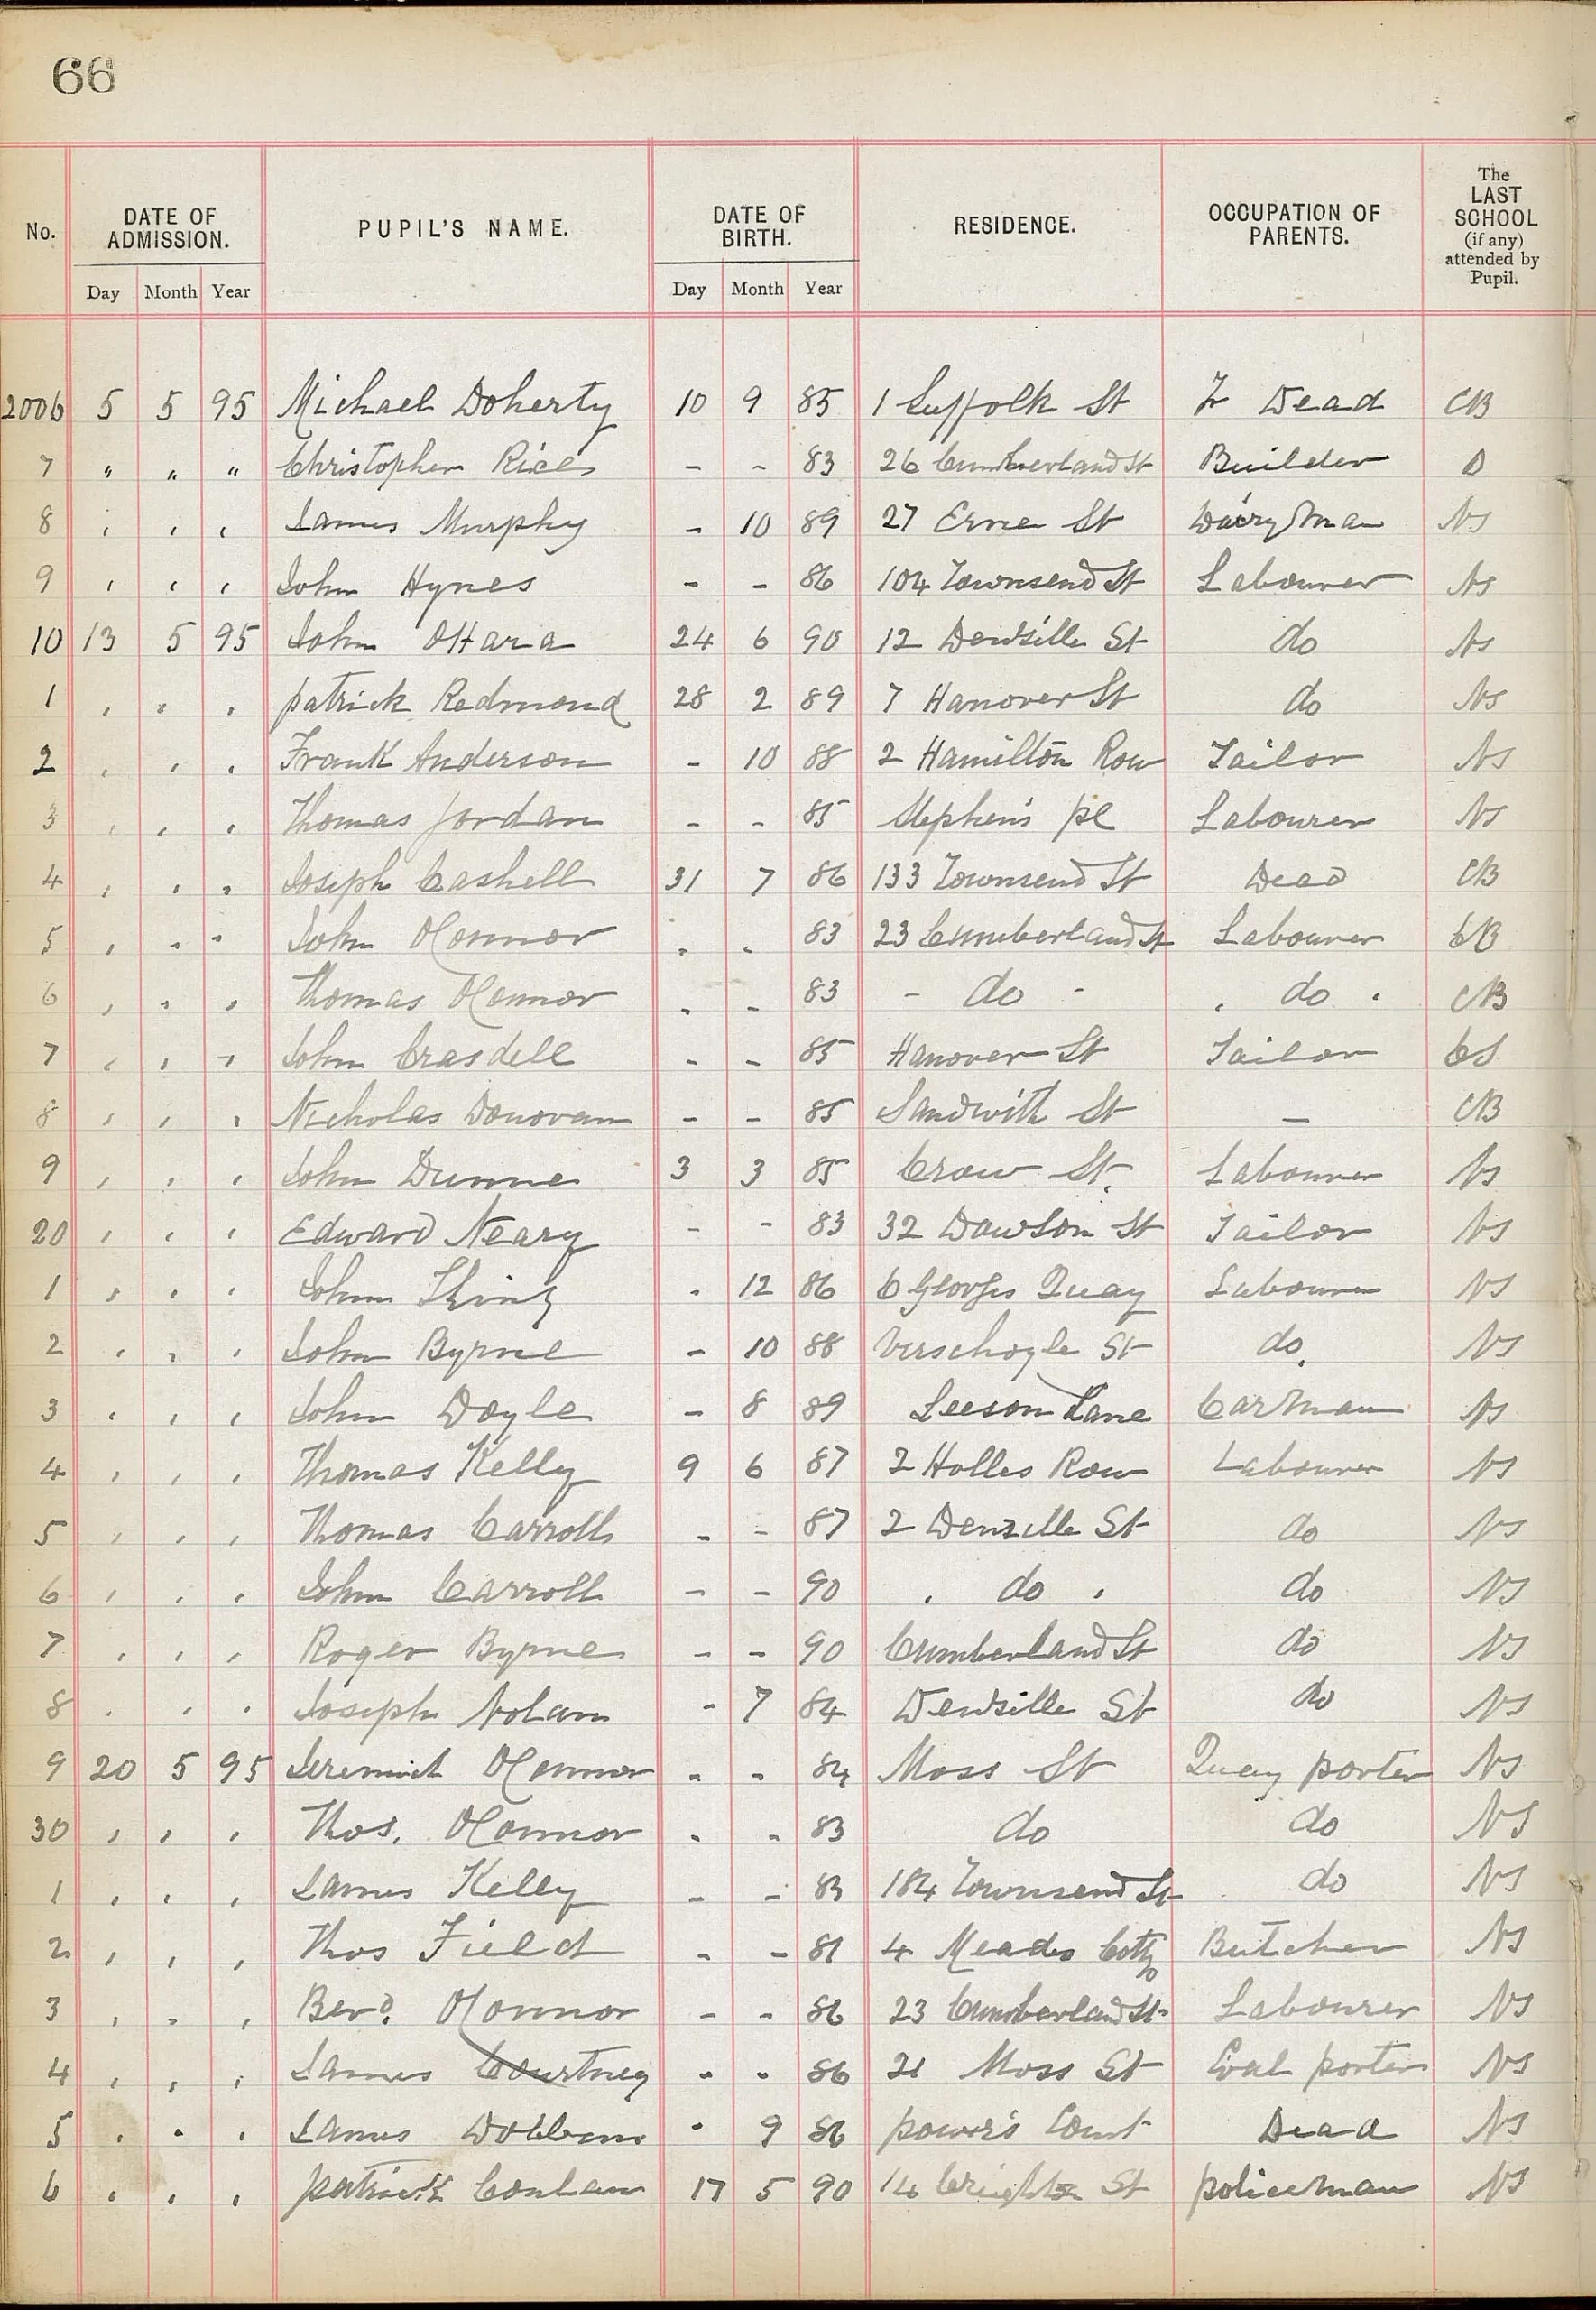 66
No. DATE OF ADMISSION. PUPIL'S NAME. DATE OF BIRTH. RESIDENCE. OCCUPATION OF PARENTS. The LAST SCHOOL (if any) attended by Pupil.
Day Month Year Day Month Year
2006 5 5 95 Michael Doherty 10 9 85 1 Suffolk St F Dead CB
7 " " " Christopher Rice - - 83 26 Cumberland St Builder
8 , , , James Murphy - 10 89 27 Erne St Dairyman NS
9 , , , John Hynes - - 86 104 Townsend St Labourer NS
10 13 5 95 John OHara 24 6 90 12 Denzille St do NS
1 , , , Patrick Redmond 28 2 89 7 Hanover St do NS
2 , , , Frank Anderson - 10 88 2 Hamilton Row Tailor NS
3 , , , Thomas Jordan - - 85 Stephen's pl Labourer NS
4 , , , Joseph Cashell 31 7 86 133 Townsend St Dead CB
5 , , , John OConnor - - 83 23 Cumberland St Labourer CB
6 , , , Thomas OConnor - - 83 - do - , do , CB
7 , , , John Crasdell - - 85 Hanover St Tailor CS
8 , , , Nicholas Donovan - - 85 Sandwith St — CB
9 , , , John Dunne 3 3 85 Crow St. Labourer NS
20 , , , Edward Neary - - 83 32 Dawson St Tailor NS
1 , , , John - 12 86 6 Georges Quay Labourer NS
2 , , , John Byrne - 10 88 Verschoyle St do. NS
3 , , , John Doyle - 8 89 Leeson Lane Carman NS
4 , , , Thomas Kelly 9 6 87 2 Holles Row Labourer NS
5 , , , Thomas Carroll - - 87 2 Denzille St do NS
6 , , , John Carroll - - 90 , do , do NS
7 , , , Roger Byrne - - 90 Cumberland St do NS
8 , , , Joseph Nolan - 7 84 Denzille St do NS
9 20 5 95 Jeremiah OConnor - - 84 Moss St Quay porter NS
30 , , , Thos. OConnor - - 83 do do NS
1 , , , James Kelly - - 83 184 Townsend St do NS
2 , , , Thos Field - - 81 4 Meades Cottg Butcher NS
3 , , , Berd. OConnor - - 86 23 Cumberland St Labourer NS
4 , , , James Courtney - - 86 21 Moss St Coal porter NS
5 , , , James Dobbins - 9 86 power's Court Dead NS
6 , , , patrick Conlan 17 5 90 14 Creighton St policeman NS